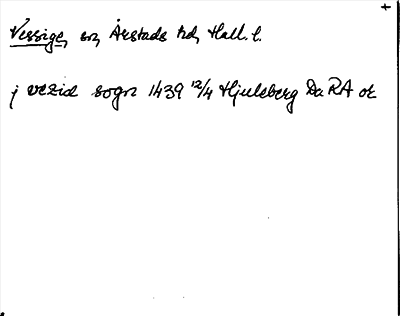 +
Vessige, sn, Årstads hd, Hall. l.
j vezid sogn 1439 12/4 Hjuleberg Da RA or